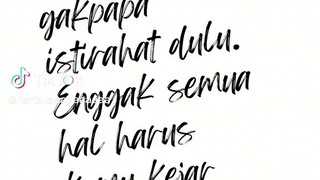 gakpapa
istirahat dulu.
Enggak semua
hal harus
kamu kejar